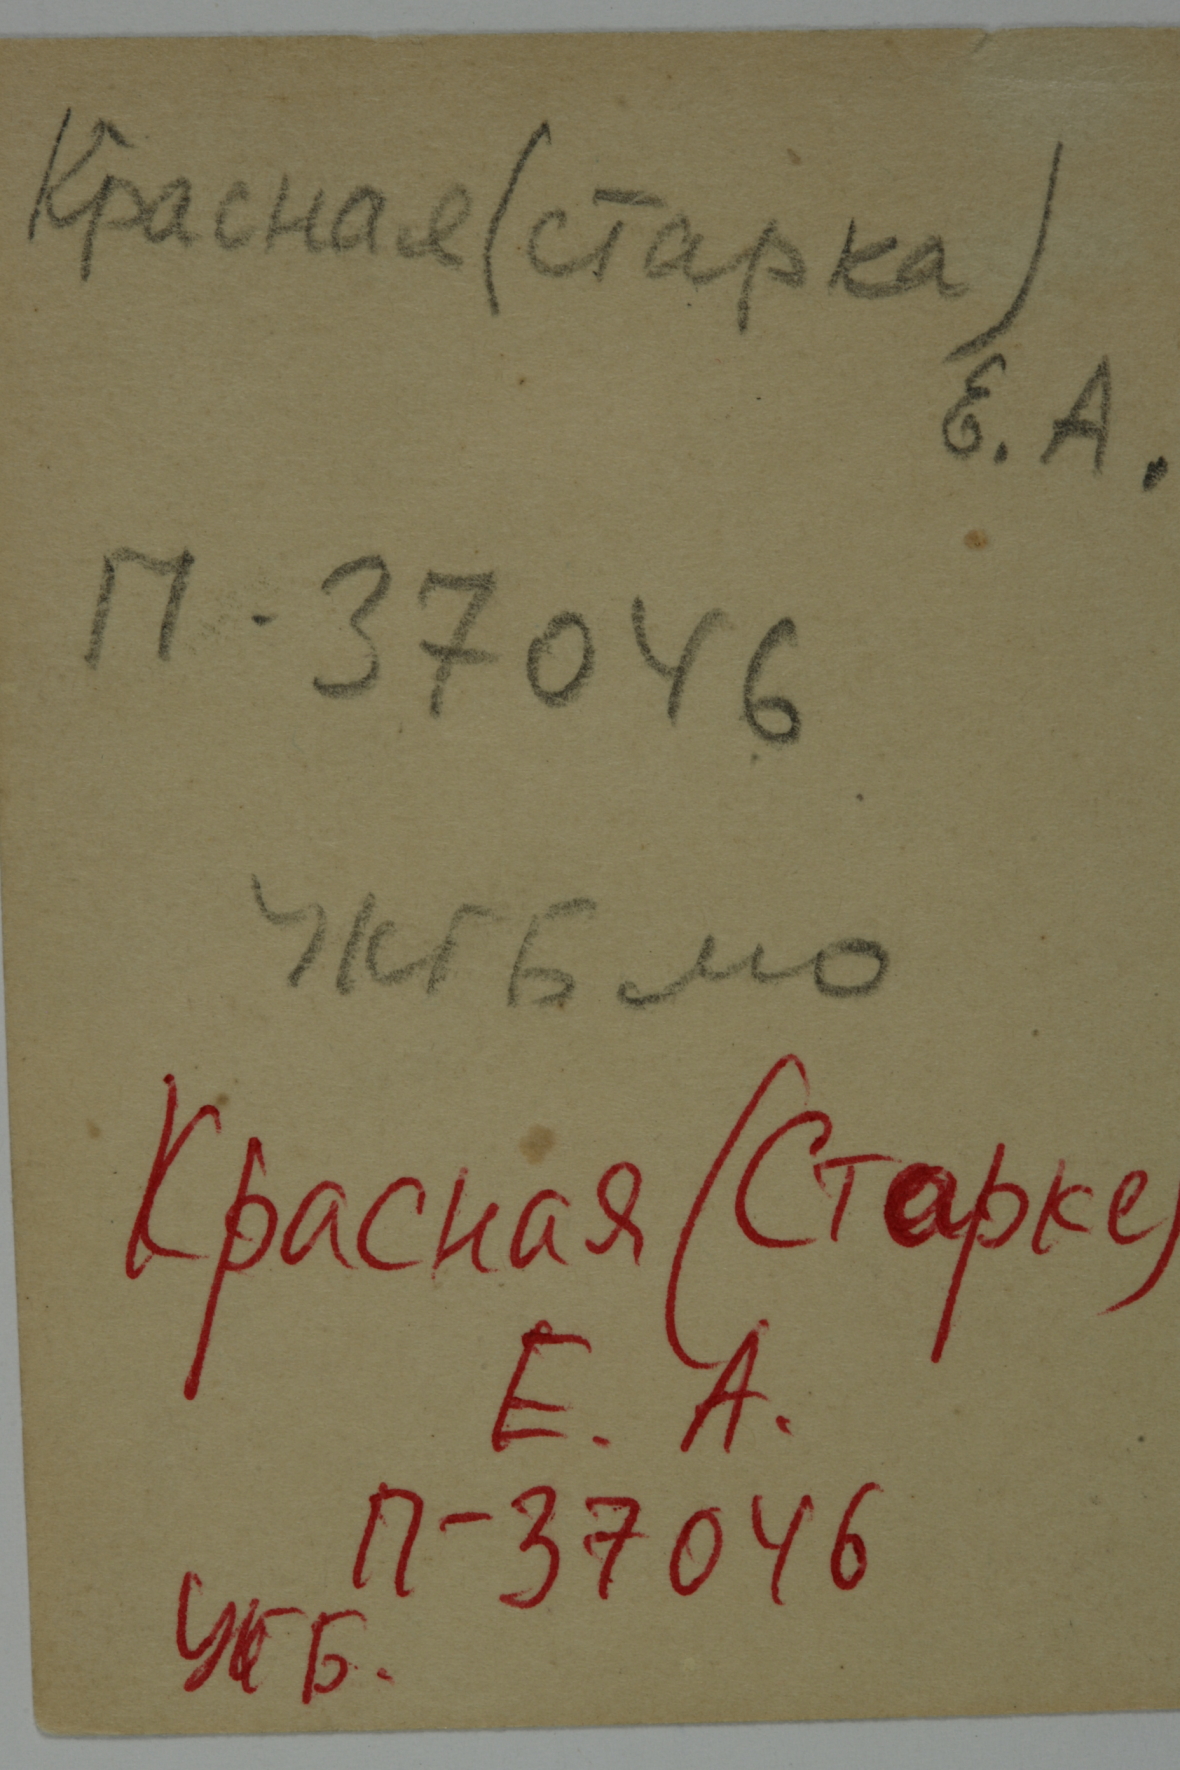 Красная (старка)
Е. А.
П-37046
УКГБ мо
Красная (Старке)
Е. А.
П-37046
УКГБ.